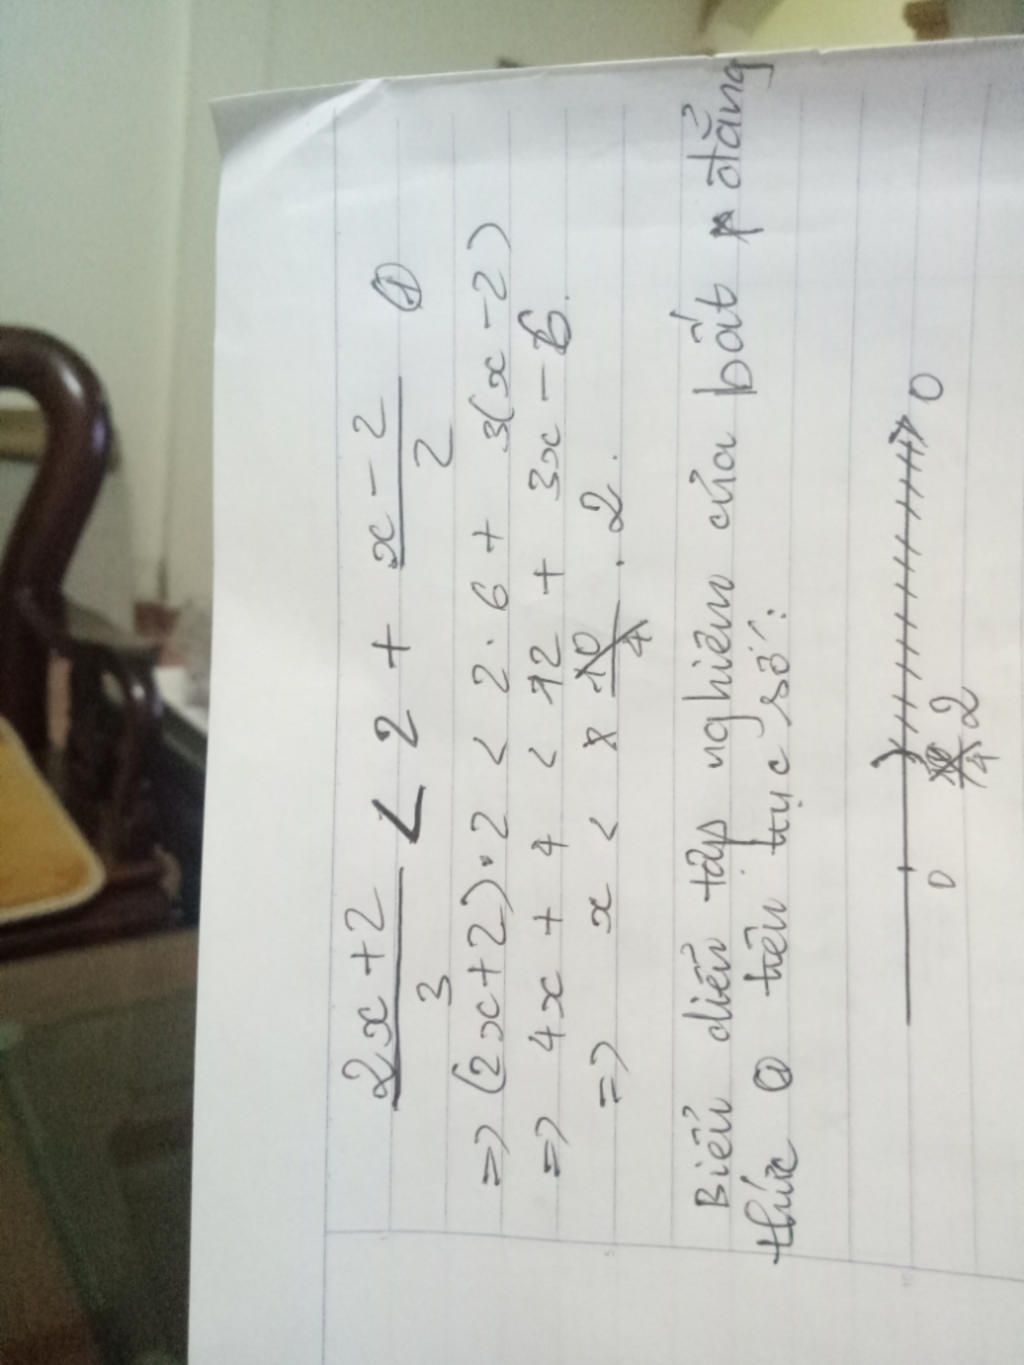 2x+2/3 < 2 + x-2/2 ①
=> (2x+2).2 < 2.6 + 3(x-2)
=> 4x + 4 < 12 + 3x - 6.
=> x < 2.
Biểu diễn tập nghiệm của bất đẳng
thức ① trên trục số:
0 2 0